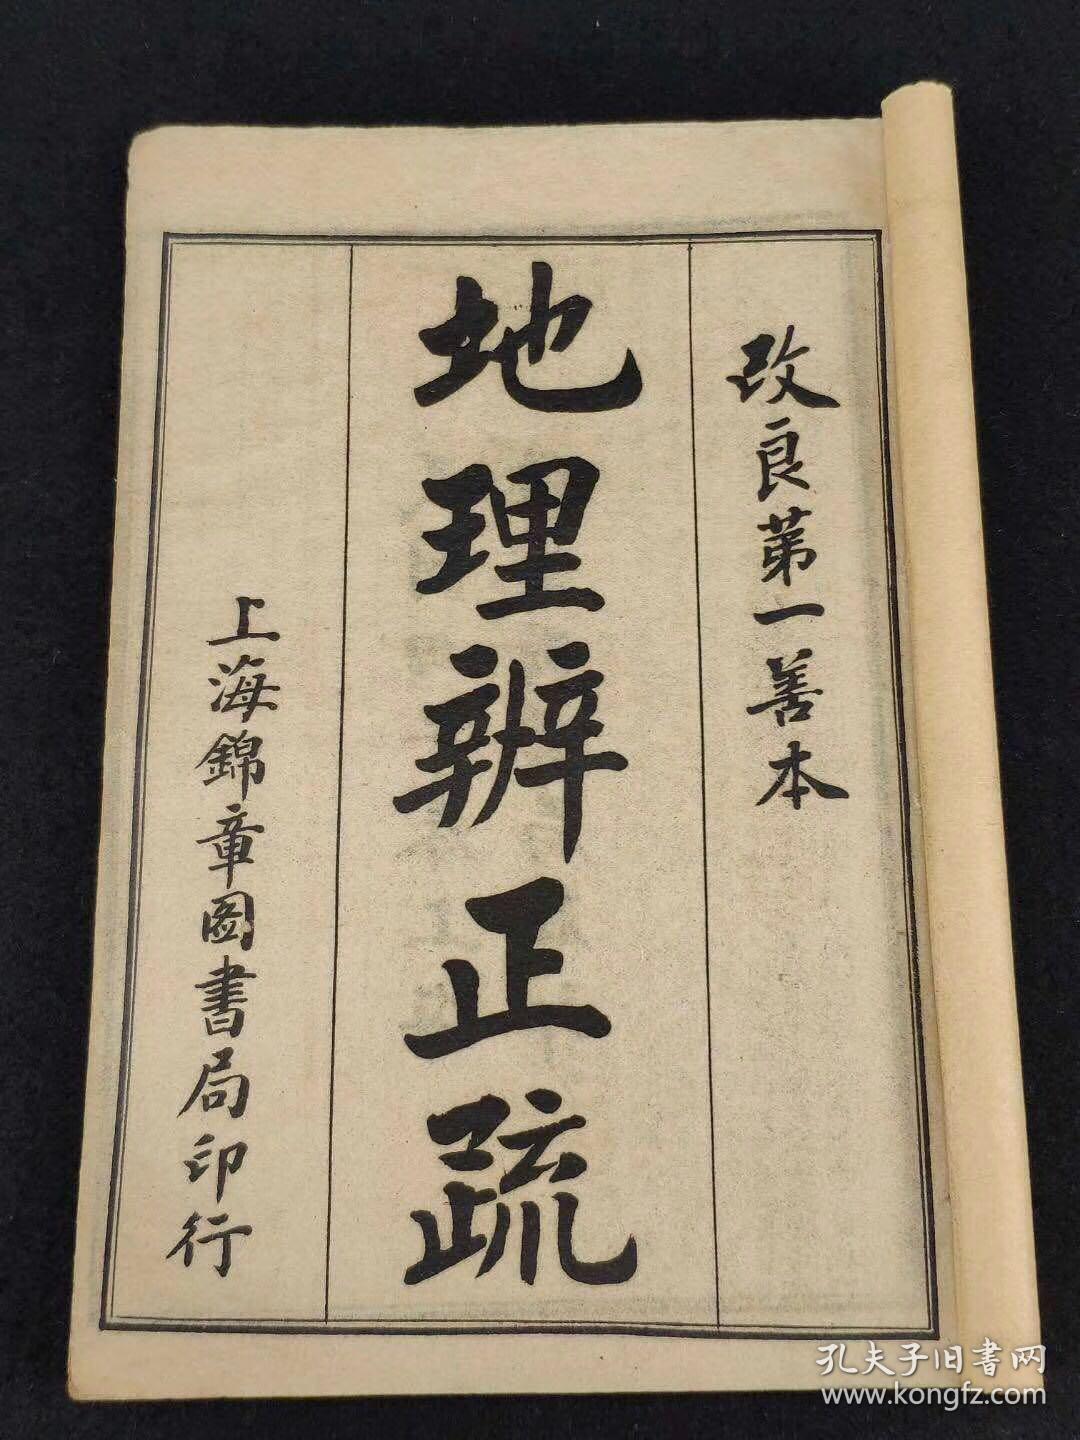 改良第一善本
地理辨正疏
上海錦章圖書局印行
孔夫子旧書网
www.kongfz.com